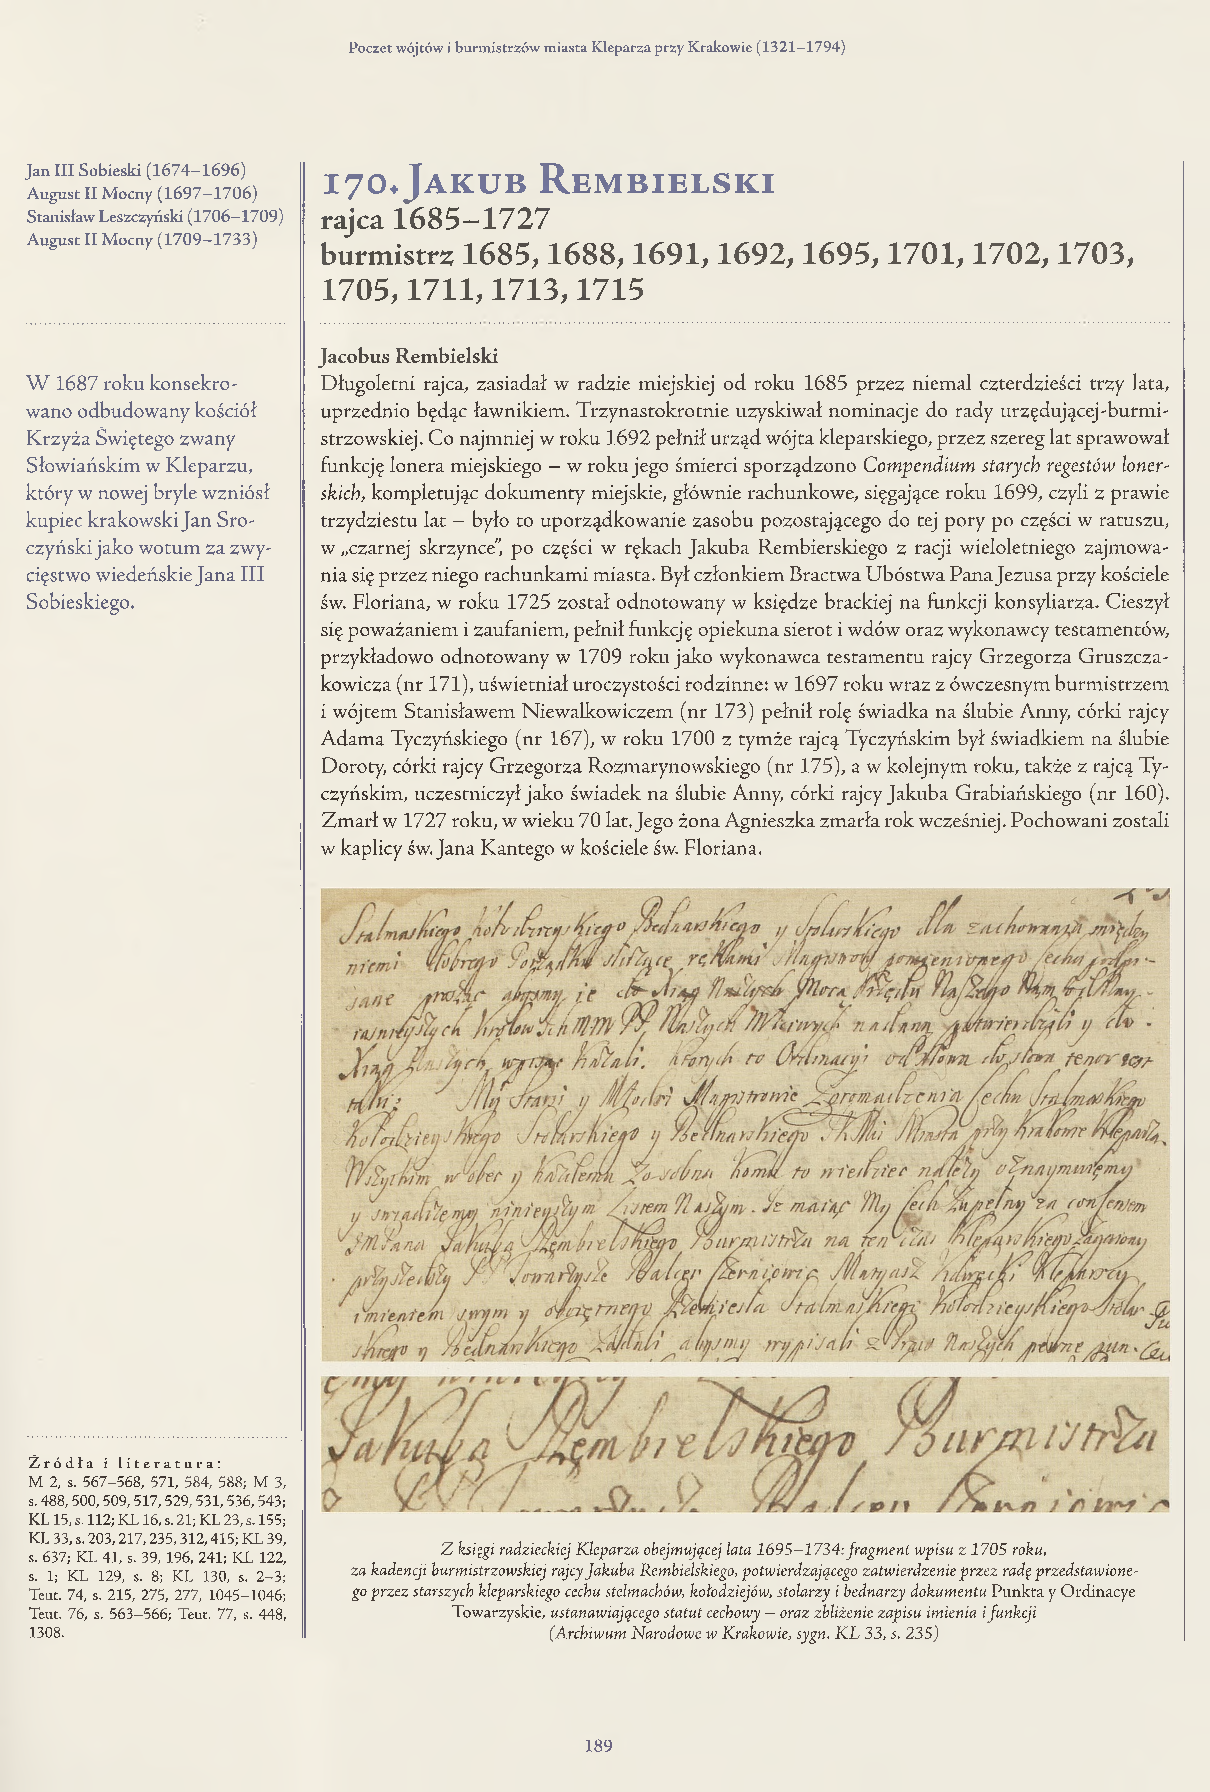 Poczet wójtów i burmistrzów miasta Kleparza przy Krakowie (1321–1794)
Jan III Sobieski (1674–1696)
August II Mocny (1697–1706)
Stanisław Leszczyński (1706–1709)
August II Mocny (1709–1733)
W 1687 roku konsekro-
wano odbudowany kościół
Krzyża Świętego zwany
Słowiańskim w Kleparzu,
który w nowej bryle wzniósł
kupiec krakowski Jan Sro-
czyński jako wotum za zwy-
cięstwo wiedeńskie Jana III
Sobieskiego.
Źródła i literatura:
M 2, s. 567–568, 571, 584, 588; M 3,
s. 488, 500, 509, 517, 529, 531, 536, 543;
KL 15, s. 112; KL 16, s. 21; KL 23, s. 155;
KL 33, s. 203, 217, 235, 312, 415; KL 39,
s. 637; KL 41, s. 39, 196, 241; KL 122,
s. 1; KL 129, s. 8; KL 130, s. 2–3;
Teut. 74, s. 215, 275, 277, 1045–1046;
Teut. 76, s. 563–566; Teut. 77, s. 448,
1308.
170. Jakub Rembielski
rajca 1685–1727
burmistrz 1685, 1688, 1691, 1692, 1695, 1701, 1702, 1703,
1705, 1711, 1713, 1715
Jacobus Rembielski
Długoletni rajca, zasiadał w radzie miejskiej od roku 1685 przez niemal czterdzieści trzy lata,
uprzednio będąc ławnikiem. Trzynastokrotnie uzyskiwał nominacje do rady urzędującej-burmi-
strzowskiej. Co najmniej w roku 1692 pełnił urząd wójta kleparskiego, przez szereg lat sprawował
funkcję lonera miejskiego – w roku jego śmierci sporządzono Compendium starych regestów loner-
skich, kompletując dokumenty miejskie, głównie rachunkowe, sięgające roku 1699, czyli z prawie
trzydziestu lat – było to uporządkowanie zasobu pozostającego do tej pory po części w ratuszu,
w „czarnej skrzynce”, po części w rękach Jakuba Rembierskiego z racji wieloletniego zajmowa-
nia się przez niego rachunkami miasta. Był członkiem Bractwa Ubóstwa Pana Jezusa przy kościele
św. Floriana, w roku 1725 został odnotowany w księdze brackiej na funkcji konsyliarza. Cieszył
się poważaniem i zaufaniem, pełnił funkcję opiekuna sierot i wdów oraz wykonawcy testamentów,
przykładowo odnotowany w 1709 roku jako wykonawca testamentu rajcy Grzegorza Gruszcza-
kowicza (nr 171), uświetniał uroczystości rodzinne: w 1697 roku wraz z ówczesnym burmistrzem
i wójtem Stanisławem Niewalkowiczem (nr 173) pełnił rolę świadka na ślubie Anny, córki rajcy
Adama Tyczyńskiego (nr 167), w roku 1700 z tymże rajcą Tyczyńskim był świadkiem na ślubie
Doroty, córki rajcy Grzegorza Rozmarynowskiego (nr 175), a w kolejnym roku, także z rajcą Ty-
czyńskim, uczestniczył jako świadek na ślubie Anny, córki rajcy Jakuba Grabiańskiego (nr 160).
Zmarł w 1727 roku, w wieku 70 lat. Jego żona Agnieszka zmarła rok wcześniej. Pochowani zostali
w kaplicy św. Jana Kantego w kościele św. Floriana.
Stalmaskiego Kołodzieyskiego Bednarskiego y Stolarskiego dla zachowania między
niemi dobrego Porządku
Kołodzieyskiego Stolarskiego y Bednarskiego Miasta przy Krakowie Kleparza
Wszytkim w obec y Każdemu
y ninieyszym Listem Naszym. Iż maiąc My Cech Zupełny za consensem
Jakuba Rembielskiego Burmistrza na ten czas Kleparskiego
imieniem swym y Rzemiesła Stalmaskiego Kołodzieyskiego
skiego y Bednarskiego żądali abysmy wypisali z Praw Naszych pewne pun-
Jakuba Rembielskiego Burmistrza
Z księgi radzieckiej Kleparza obejmującej lata 1695–1734: fragment wpisu z 1705 roku,
za kadencji burmistrzowskiej rajcy Jakuba Rembielskiego, potwierdzającego zatwierdzenie przez radę przedstawione-
go przez starszych kleparskiego cechu stelmachów, kołodziejów, stolarzy i bednarzy dokumentu Punkta y Ordinacye
Towarzyskie, ustanawiającego statut cechowy – oraz zbliżenie zapisu imienia i funkcji
(Archiwum Narodowe w Krakowie, sygn. KL 33, s. 235)
189